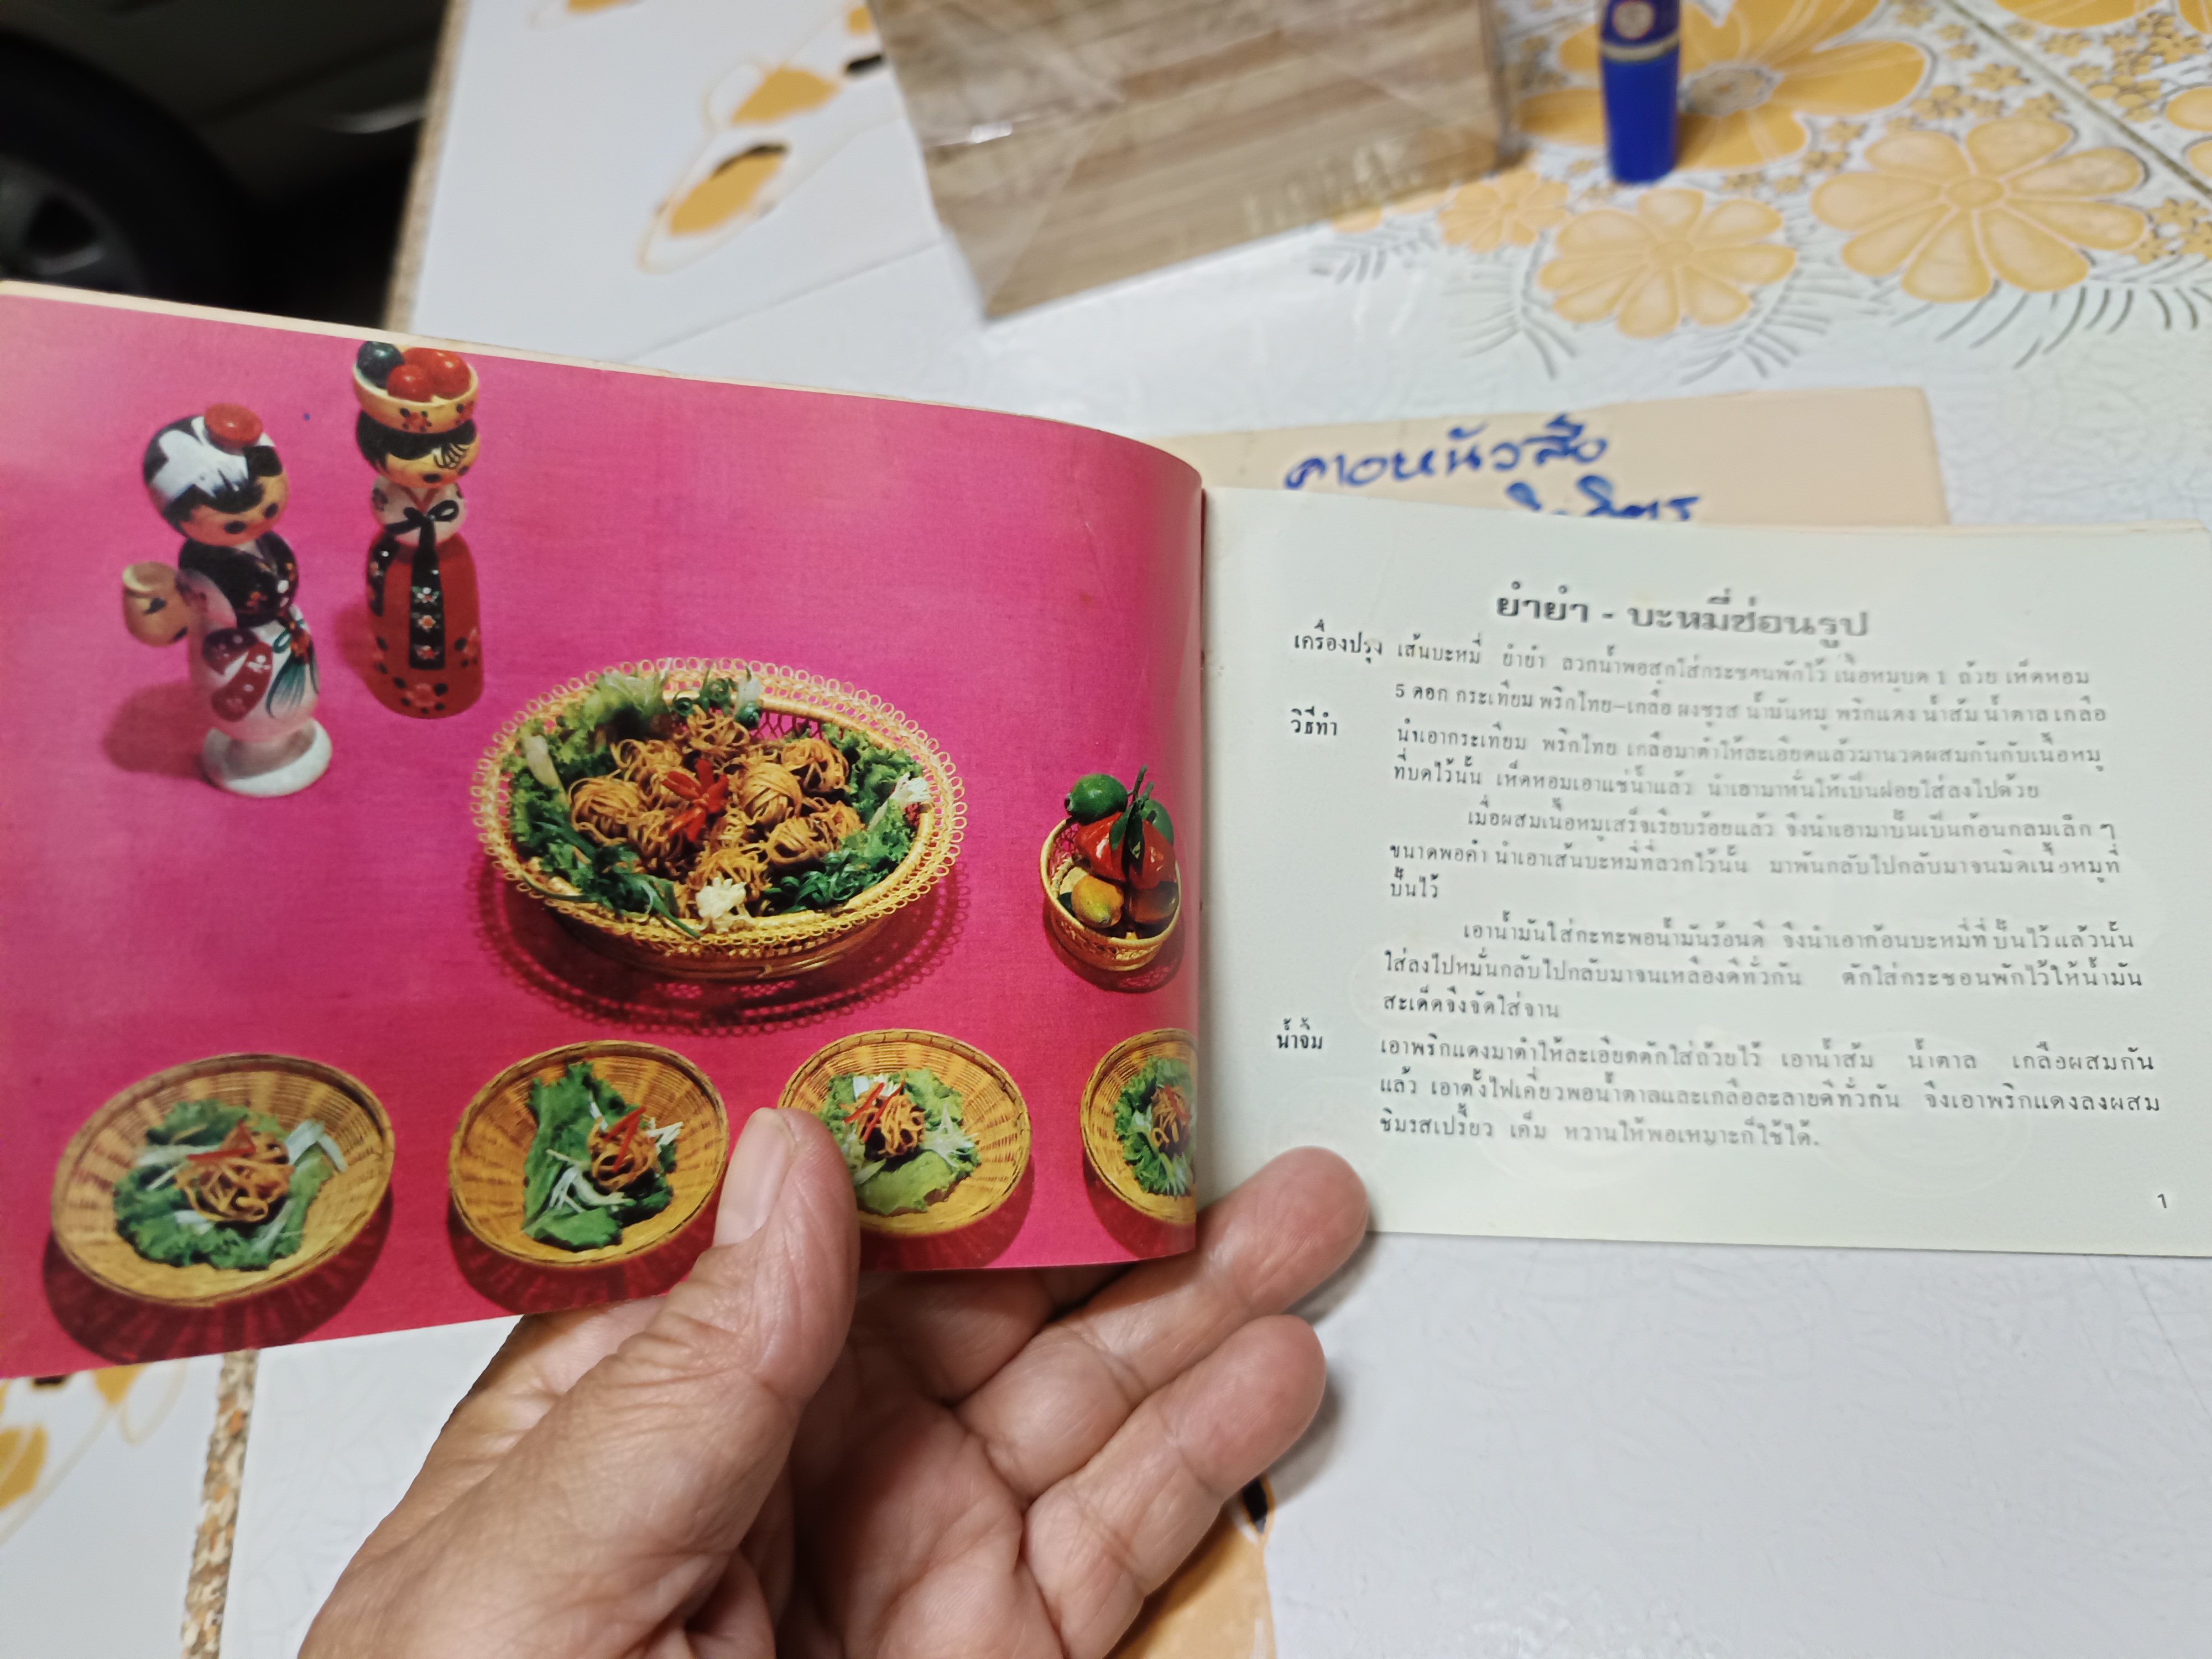 ดาอหนัวสือ
ยำยำ - บะหมี่ซ่อนรูป
เครื่องปรุง เส้นบะหมี่ ยำยำ ลวกน้ำพอสุกใส่กระชอนพักไว้ เนื้อหมูบด 1 ถ้วย เห็ดหอม
5 ดอก กระเทียม พริกไทย–เกลือ ผงชูรส น้ำมันหมู พริกแดง น้ำส้ม น้ำตาล เกลือ
วิธีทำ นำเอากระเทียม พริกไทย เกลือมาตำให้ละเอียดแล้วมานวดผสมกันกับเนื้อหมู
ที่บดไว้นั้น เห็ดหอมเอาแช่น้ำแล้ว นำเอามาหั่นให้เป็นฝอยใส่ลงไปด้วย
เมื่อผสมเนื้อหมูเสร็จเรียบร้อยแล้ว จึงนำเอามาปั้นเป็นก้อนกลมเล็ก ๆ
ขนาดพอคำ นำเอาเส้นบะหมี่ที่ลวกไว้นั้น มาพันกลับไปกลับมาจนมิดเนื้อหมูที่
ปั้นไว้
เอาน้ำมันใส่กะทะพอน้ำมันร้อนดี จึงนำเอาก้อนบะหมี่ที่ปั้นไว้แล้วนั้น
ใส่ลงไปหมั่นกลับไปกลับมาจนเหลืองดีทั่วกัน ตักใส่กระชอนพักไว้ให้น้ำมัน
สะเด็ดจึงจัดใส่จาน
น้ำจิ้ม เอาพริกแดงมาตำให้ละเอียดตักใส่ถ้วยไว้ เอาน้ำส้ม น้ำตาล เกลือผสมกัน
แล้ว เอาตั้งไฟเคี่ยวพอน้ำตาลและเกลือละลายดีทั่วกัน จึงเอาพริกแดงลงผสม
ชิมรสเปรี้ยว เค็ม หวานให้พอเหมาะก็ใช้ได้.
1